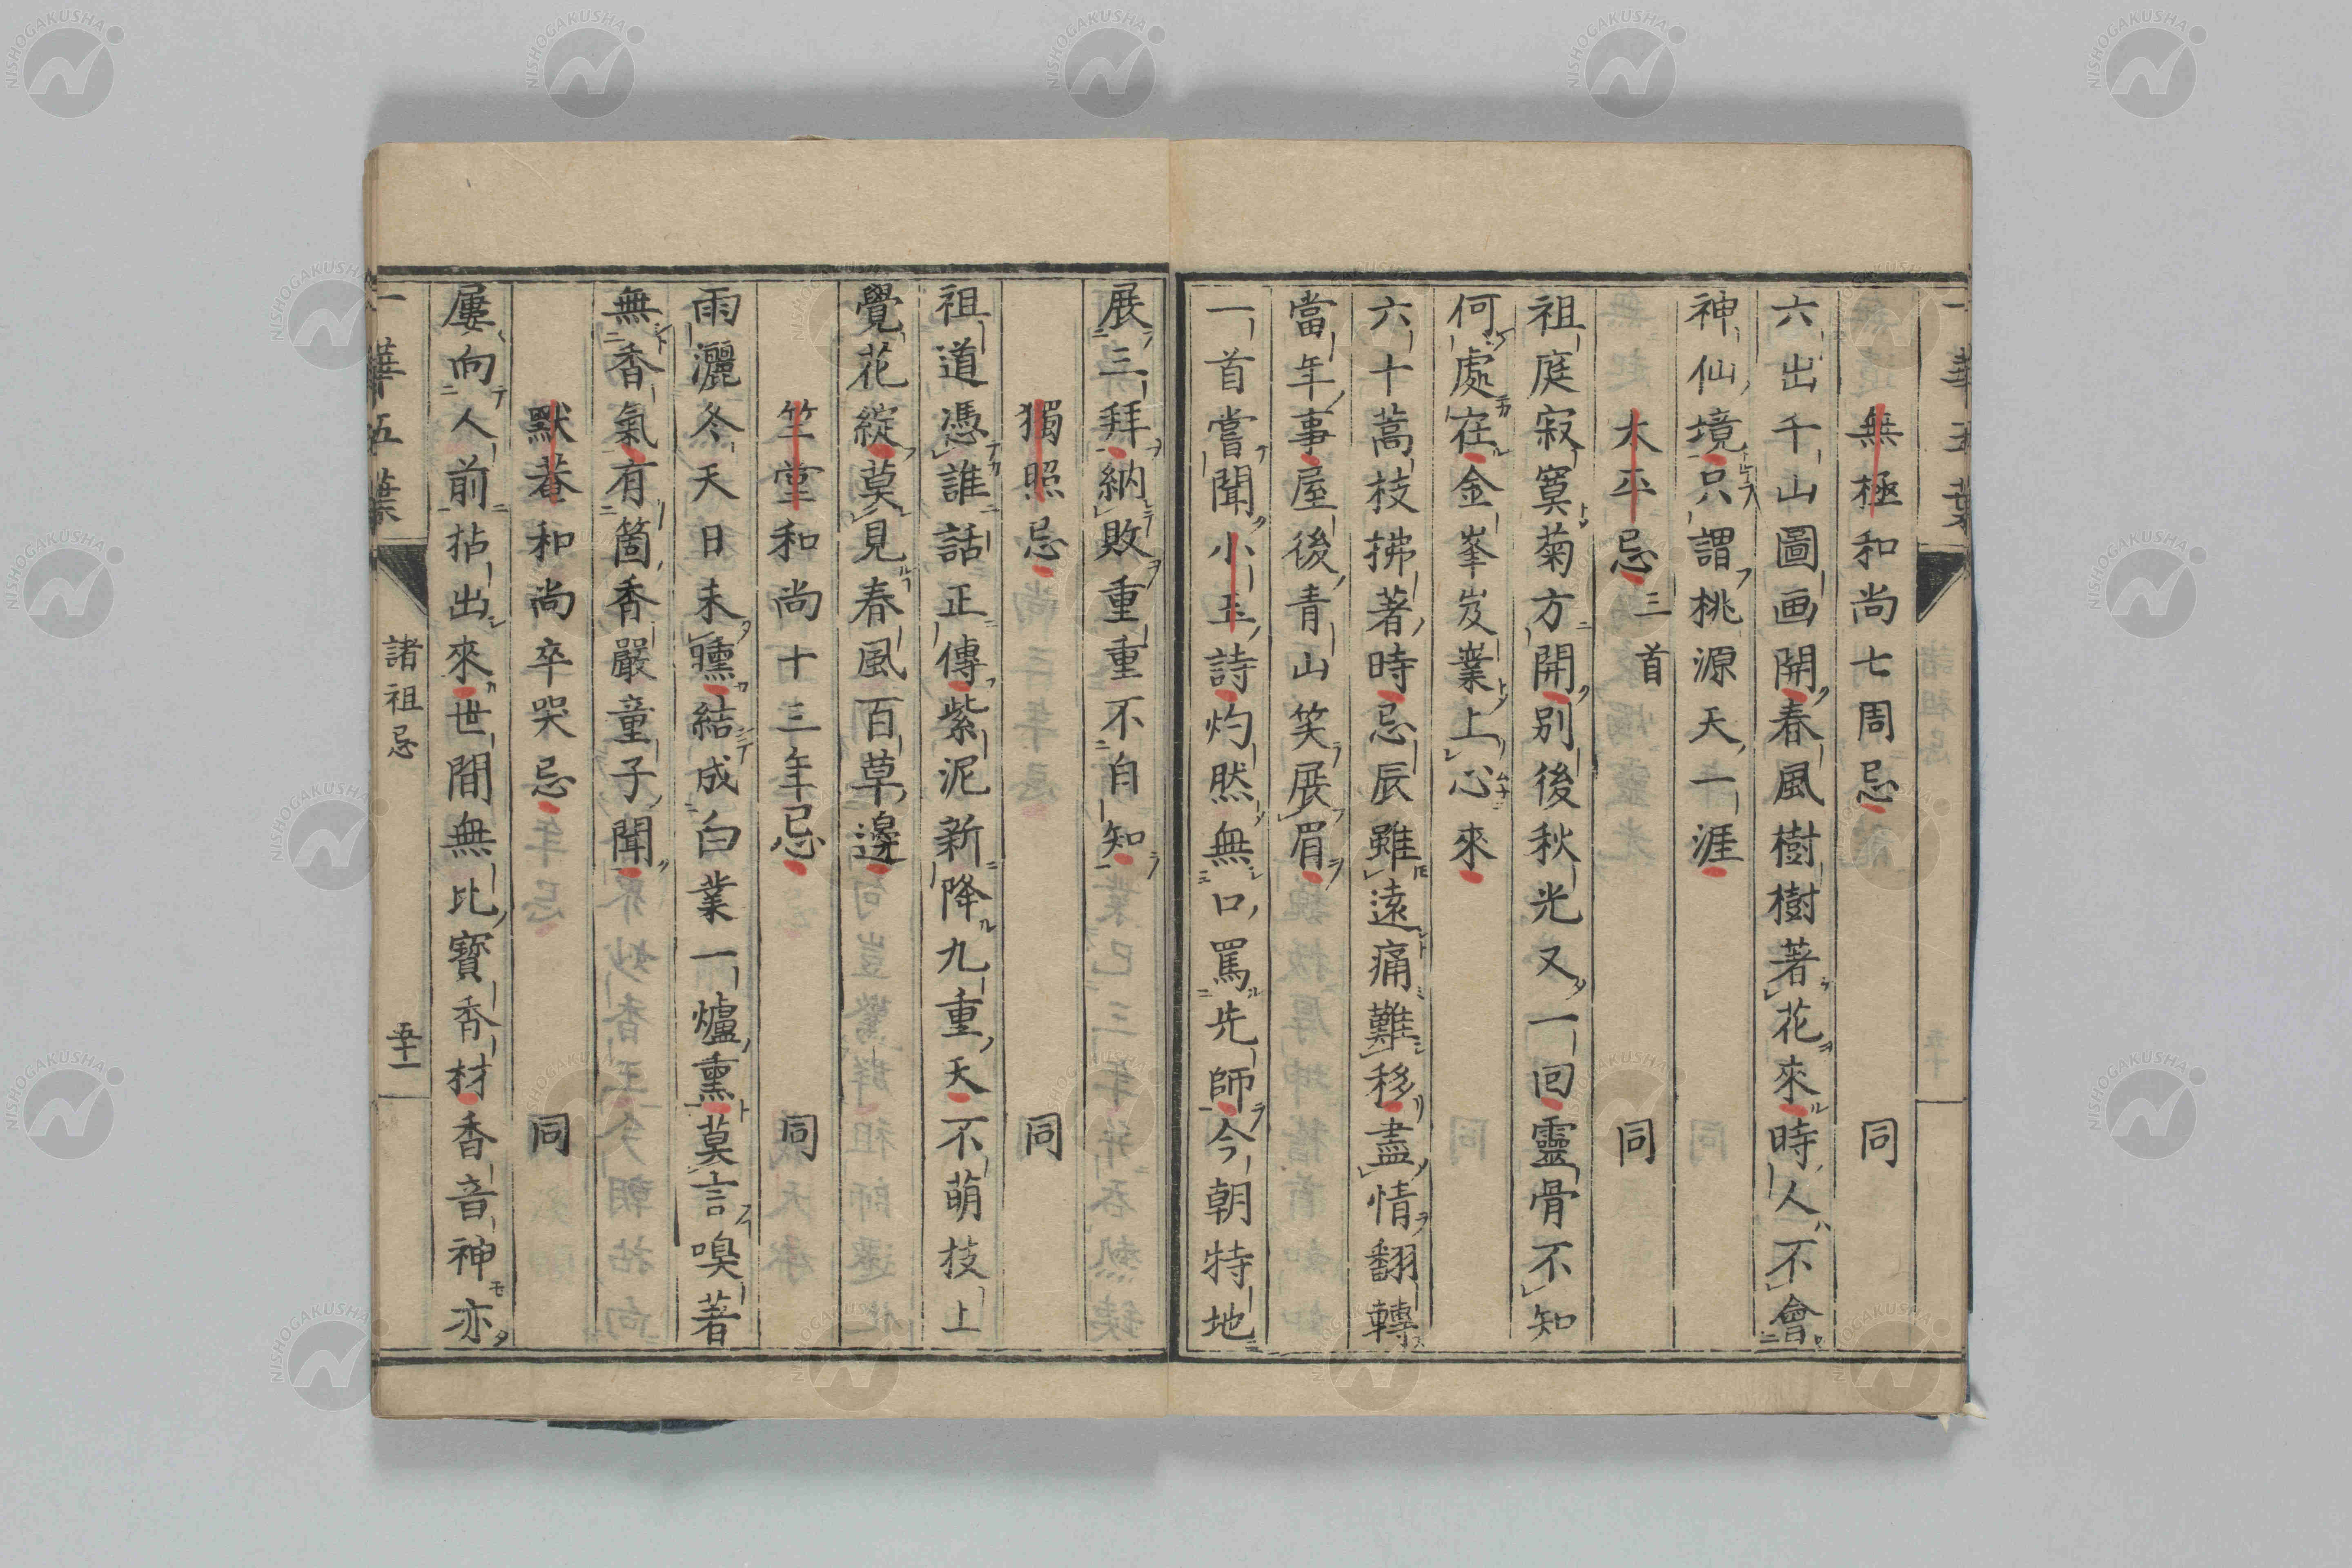 無極和尚七周忌 同
六出千山圖画開春風樹樹著花來時人不會
神仙境只謂桃源天一涯
太平忌三首 同
祖庭寂寞菊方開別後秋光又一回靈骨不知
何處在金峯岌業上心來
六十蒿枝拂著時忌辰雖遠痛難移盡情翻轉
當年事屋後青山笑展眉
一首嘗聞小玉詩灼然無口罵先師今朝特地
展三拜納敗重重不自知
獨照忌 同
祖道憑誰話正傳紫泥新降九重天不萌技上
覺花綻莫見春風百草邊
竺堂和尚十三年忌 同
雨灑冬天日未曛結成白業一爐熏莫言嗅著
無香氣有箇香嚴童子聞
默菴和尚卒哭忌 同
屢向人前拈出來世間無比寶香材香音神亦
一華五葉 諸祖忌 五十一